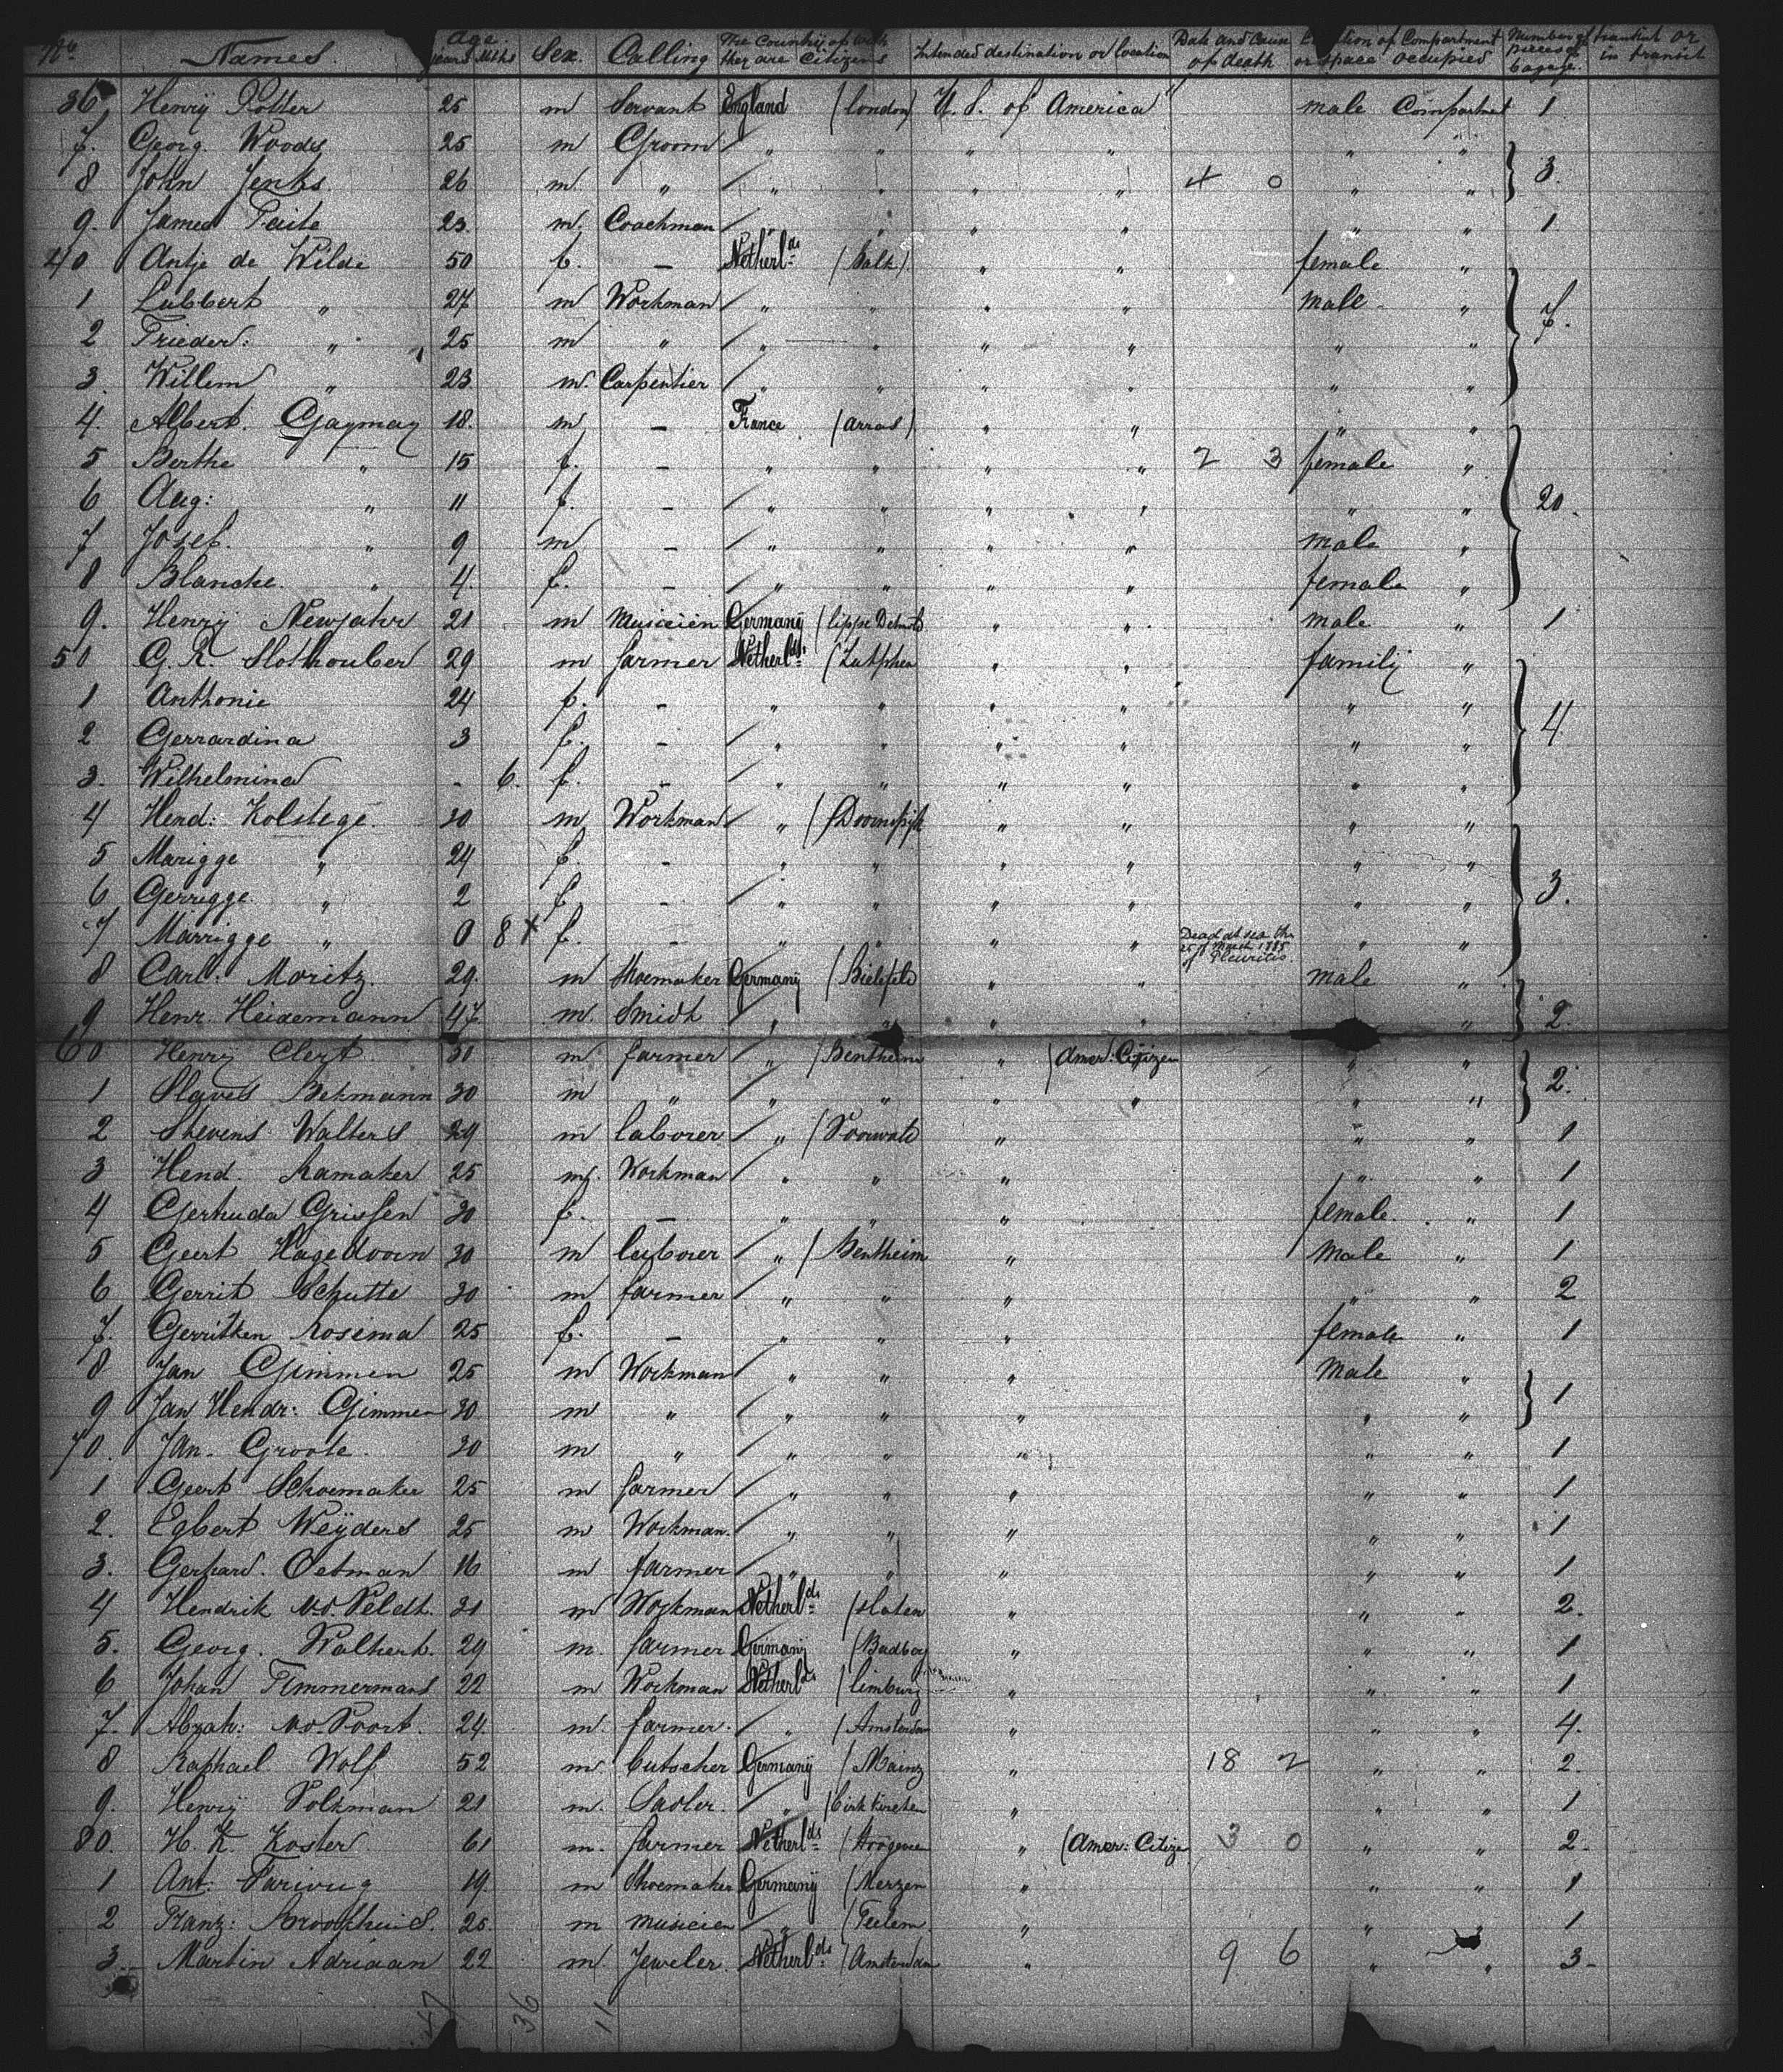 No. Names. Age years Mths Sex. Calling The Country of wich they are Citizens Intended destination or location Date and Cause of death Location of Compartment or space occupied Number of pieces of bagage. transient or in transit
36 Henrij Potter 25 m Servant England (London) U. S. of America male Compartmet 1
7. Georg. Woods 25 m Groom " " " " " "
8 John Jenks 26 m. " " " " " 4 0 " " 3.
9. James Taite 23. m. Coachman " " " " " " 1.
40 Antje de Wilde 50 f. – Netherl.ds (Balk) " " female "
1 Lubbert " 27 m Workman " " " " male " 7.
2 Frieder: " 25 m " " " " " " "
3. Willem " 23 m. Carpentier " " " " " "
4. Albert. Gaymay 18. m – France (arras) " " " "
5 Berthe " 15 f. – " " " " 2 3 female "
6 Aug: " 11 f. – " " " " " " 20.
7 Josef. " 9 m – " " " " male "
8 Blanche. " 4. f. – " " " " female "
9. Henrij Newjahr 21 m Musicien Germanij (Lippe Detmold " " male " 1
50 G. R. Slothouber 29 m farmer Netherl.ds (Zutphen " " familij "
1 Anthonie 24 f. – " " " " " "
2 Gerrardina 3 f. – " " " " " " 4.
3. Wilhelmina - 6. f. – " " " " " "
4 Hend: Kolstege 30 m Workman " (Doornspijk " " " "
5 Marigge " 24 f. – " " " " " "
6 Gerrigge. " 2 f. – " " " " " " 3.
7 Marrigge " 0 8 + f. – " " " " Dead at sea the 25th March 1885 of Pleuritis. " "
8 Carl: Moritz. 29. m Shoemaker Germanij (Bielefeld " " male "
9 Henr. Heidemann 47. m. Smidh " " " " " 2.
60 Henrij Clert. 30 m farmer " (Bentheim " (Amer: Citizen " "
1 Slaves Bekmann 30 m " " " " " " " 2.
2 Stevens Walters 29 m laborer " " " " 1
3 Hend. Ramaker 25 m. Workman " " " " " 1
4 Gertruda Grissen 30 f. – " " " female. " 1
5 Geert Hagedoorn 30 m laborer " (Bentheim " male " 1
6 Gerrit Schutte 30 m farmer " " " " " 2
7. Gerritken Rosema 25 f. – " " " female " 1
8 Jan Gimmen 25 m Workman " " " male "
9 Jan Hendr: Gimmen 30 m " " " " " " 1
70. Jan. Groote. 30 m " " " " " " 1
1 Geert Schoemaker 25 m farmer " " " " " 1
2. Egbert Weijders 25 m Workman. " " " " " 1
3. Gerhard. Oetman 16 m farmer " " " " " 1
4 Hendrik v.d. Veldt. 31 m Workman Netherl.ds (Sloten " " " 2.
5. Georg. Walhert. 29 m. farmer Germanij " " " 1
6 Johan Timmermans 22 m Workman Netherl.ds (Limburg " " " 1
7. Abrah: v.d. Poort. 24. m. farmer. " (Amsterdam " " " 4.
8 Raphael Wolf 52 m Cutscher Germanij (Mainz " 18 2 " " 2.
9. Henrij Volkman 21 m. Sadler. " " " " 1
80. H. K. Koster 61 m. farmer Netherl.ds (Hoogeveen " (Amer: Citize 3 0 " " 2.
1 Ant. 19. m Shoemaker Germanij (Merzen " " " 1
2 Franz: 25. m musicien " " " 1
3. Martin Adriaan 22 m. Jeweler. Netherl.ds (Amsterdam " 9 6 " " 3.
47 36 11